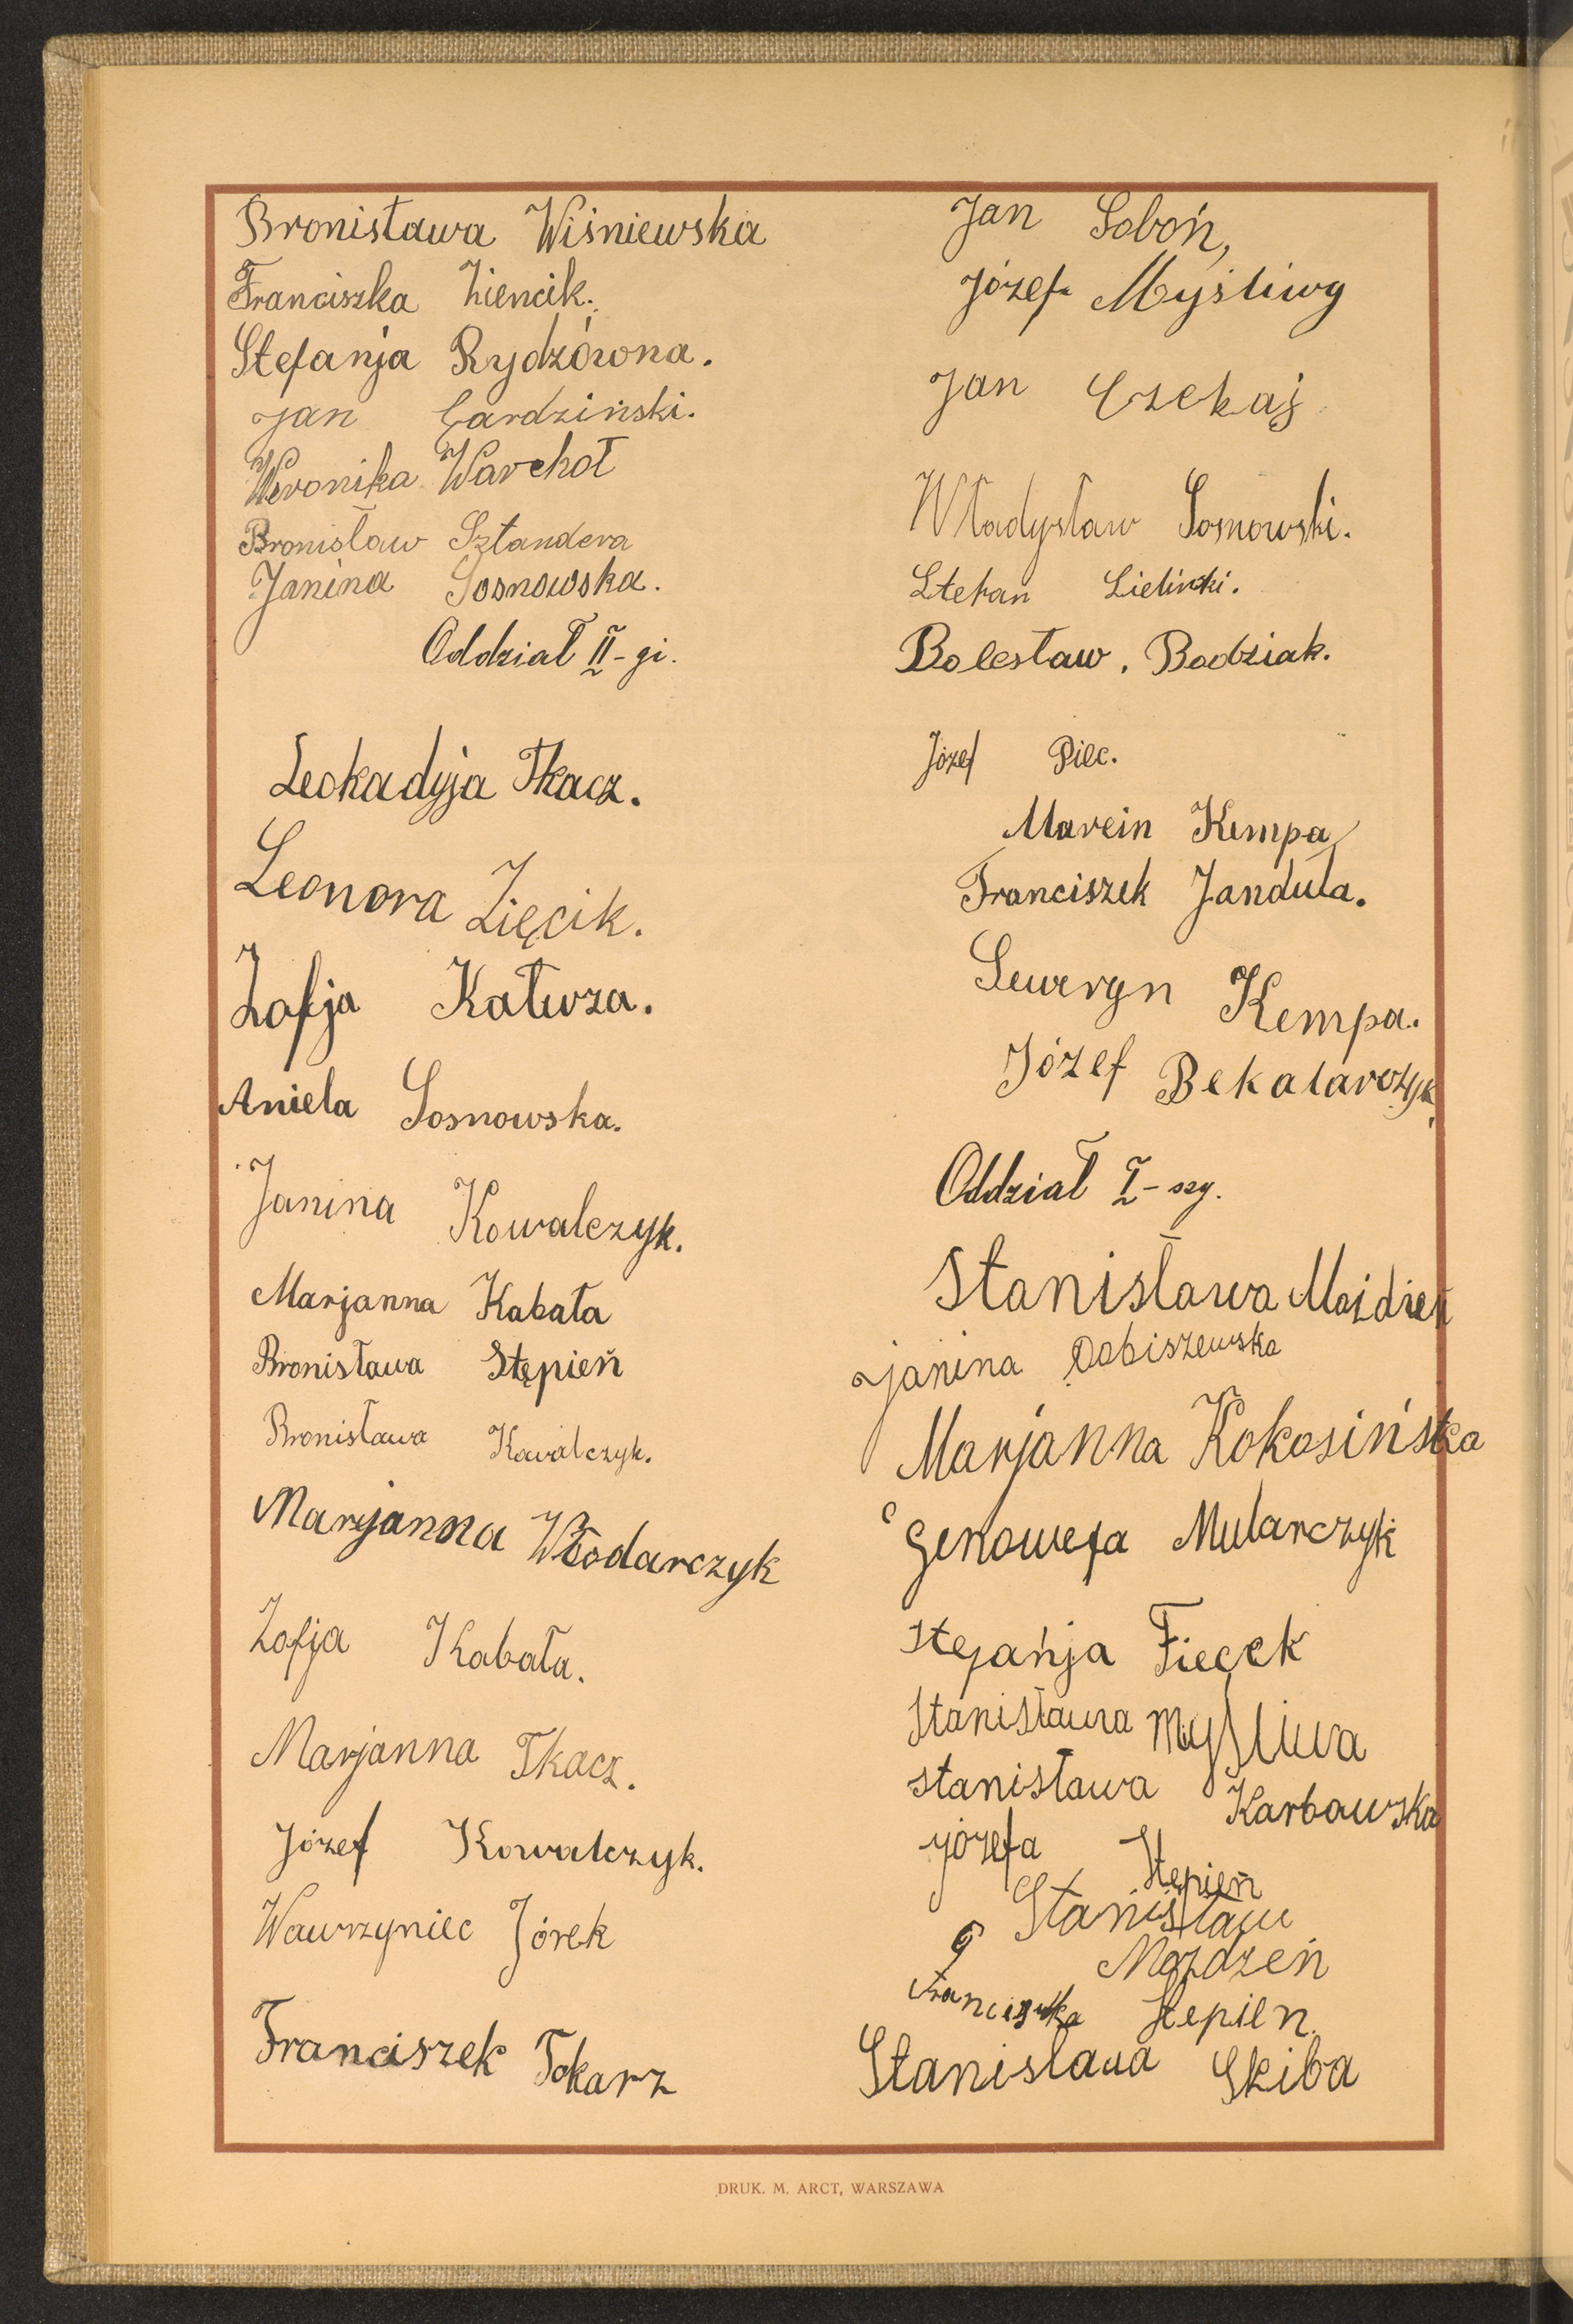 Bronisława Wiśniewska
Franciszka Ziencik.
Stefanja Rydzówna.
Jan Gardziński.
Weronika Warchoł
Bronisław Sztandera
Janina Sosnowska.
Oddział II-gi.
Leokadyja Tkacz.
Leonora Zięcik.
Zofja Kałuza.
Aniela Sosnowska.
Janina Kowalczyk.
Marjanna Kabała
Bronisława Stępień
Bronisława Kowalczyk.
Marjanna Włodarczyk
Zofja Kabała.
Marjanna Tkacz.
Józef Kowalczyk.
Wawrzyniec Jórek
Franciszek Tokarz
Jan Soboń,
Józef Myśliwy
Jan Czekaj
Władysław Sosnowski.
Stefan Zieliński.
Bolesław. Bodziak.
Józef Piec.
Marcin Kempa
Franciszek Janduła.
Seweryn Kempa.
Józef Bekalarczyk.
Oddział I-szy.
Stanisława Możdzeń
Janina Dobiszewska
Marjanna Kokosińska
Genowefa Mularczyk
Stefańja Fiecek
Stanisława Myśliwa
stanisława Karbawska
józefa Stępień
Stanisław
Mozdzeń
Franciszka Stepien.
Stanislawa Skiba
DRUK. M. ARCT, WARSZAWA